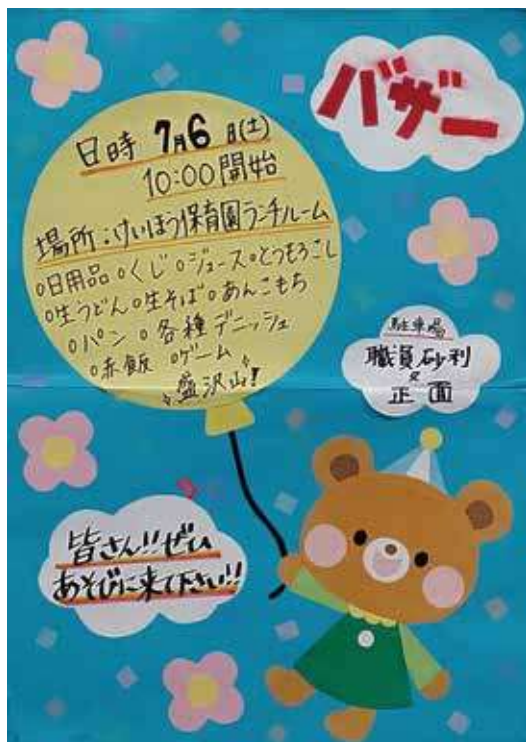 バザー
日時 7月6日(土)
10:00開始
場所:けいほう保育園ランチルーム
○日用品○くじ○ジュース○とうもろこし
○生うどん○生そば○あんこもち
○パン○各種デニッシュ
○赤飯○ゲーム
盛沢山!
駐車場
職員砂利
正面
皆さん!!ぜひ
あそびに来て下さい!!